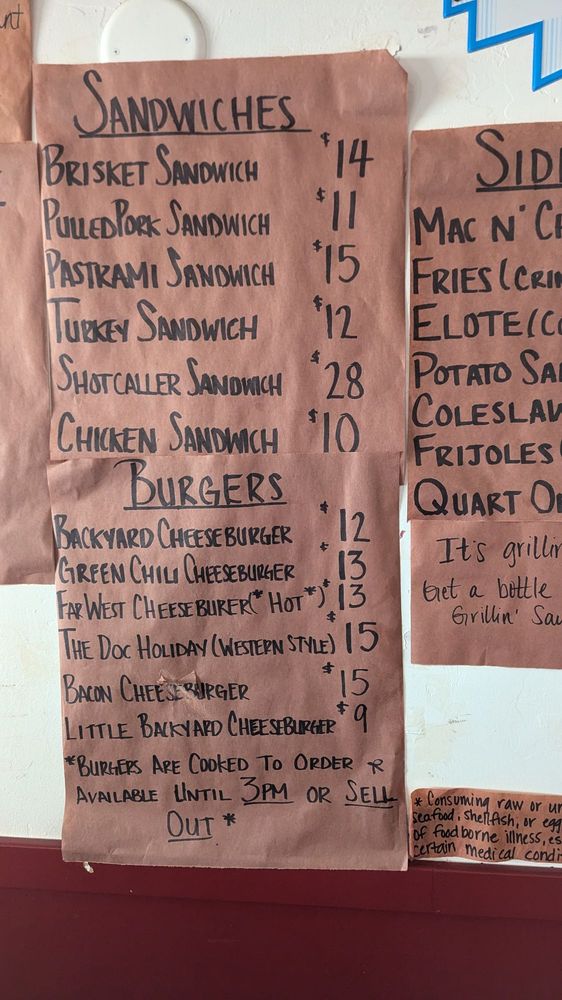 SANDWICHES
BRISKET SANDWICH $14
PULLED PORK SANDWICH $11
PASTRAMI SANDWICH $15
TURKEY SANDWICH $12
SHOTCALLER SANDWICH $28
CHICKEN SANDWICH $10
BURGERS
BACKYARD CHEESEBURGER $12
GREEN CHILI CHEESEBURGER $13
FAR WEST CHEESEBURER(*HOT*) $13
THE DOC HOLIDAY (WESTERN STYLE) $15
BACON CHEESEBURGER $15
LITTLE BACKYARD CHEESEBURGER $9
*BURGERS ARE COOKED TO ORDER &
AVAILABLE UNTIL 3PM OR SELL
OUT *
SID
MAC N' CH
FRIES (CRIN
ELOTE (CO
POTATO SAL
COLESLAW
FRIJOLES
QUART O
It's grillin
Get a bottle
Grillin' Sau
* Consuming raw or un
seafood, shellfish, or egg
of foodborne illness, es
certain medical condi